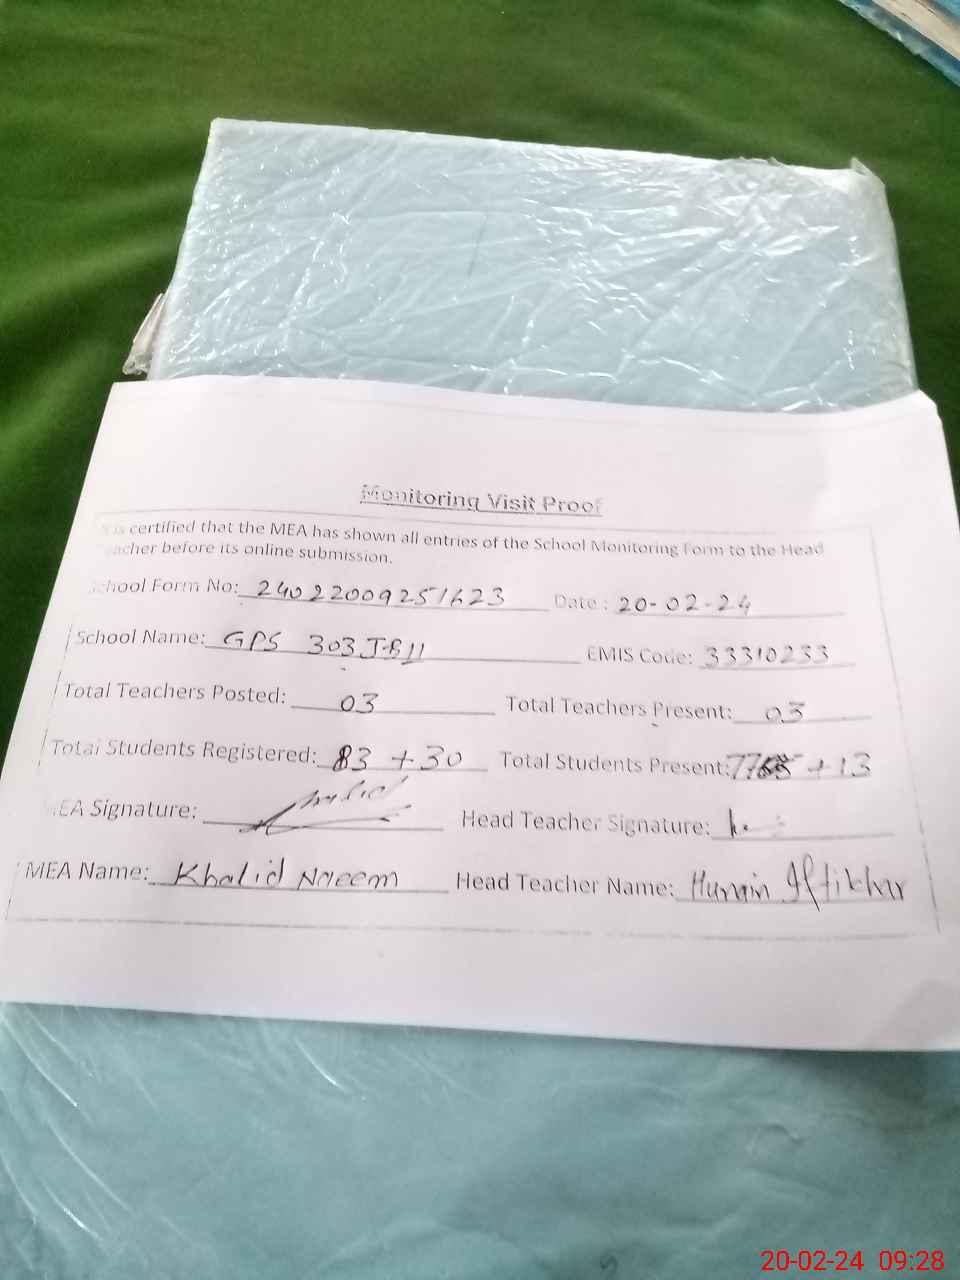 Monitoring Visit Proof
is certified that the MEA has shown all entries of the School Monitoring Form to the Head
Teacher before its online submission.
School Form No: 24022009251623 Date: 20-02-24
School Name: GPS 303 JB II EMIS Code: 33310233
Total Teachers Posted: 03 Total Teachers Present: 03
Total Students Registered: 83 + 30 Total Students Present: + 13
MEA Signature: Head Teacher Signature:
MEA Name: Khalid Naeem Head Teacher Name: Iftikhar
20-02-24 09:28